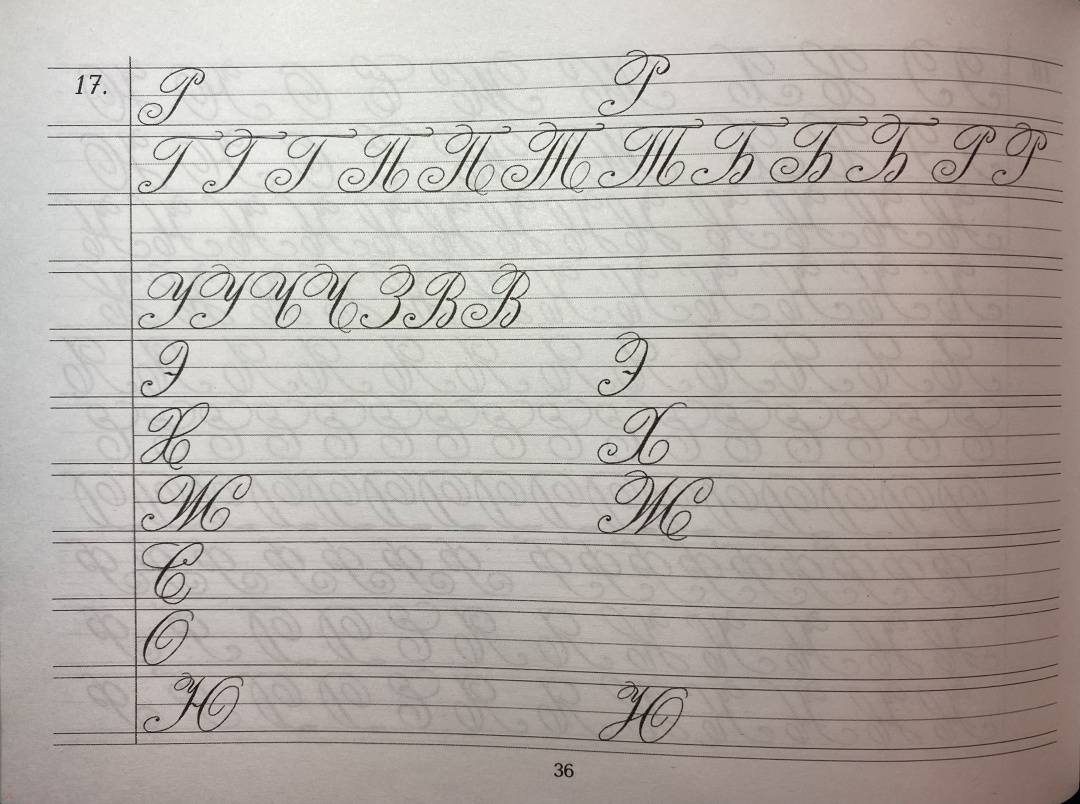 17. Р Р
Г Г Г П П Т Т Б Б Б Р Р
У У Ч Ч З В В
Э Э
Х Х
Ж Ж
С
О
Ю Ю
36